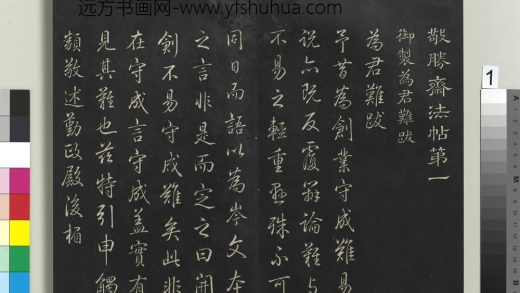 远方书画网-www.yfshuhua.com
敬勝齋法帖第一
御製為君難跋
為君難跋
予昔為創業守成難易
說亦既反覆辯論難与
不易之輕重懸殊不可
同日而語以為岑文本
之言非是而定之曰開
創不易守成難矣此非
在守成言守成盖實有
見其難也茲特引申觸
類敬述勤政殿後楣
1